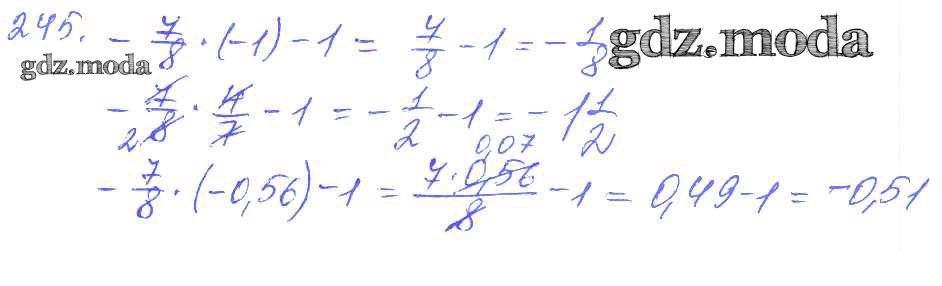 245. - 7/8 · (-1) - 1 = 7/8 - 1 = - 1/8 gdz.moda
gdz.moda
- 7/8 · 4/7 - 1 = - 1/2 - 1 = - 1 1/2
2
0,07
- 7/8 · (-0,56) - 1 = 7 · 0,56/8 - 1 = 0,49 - 1 = -0,51